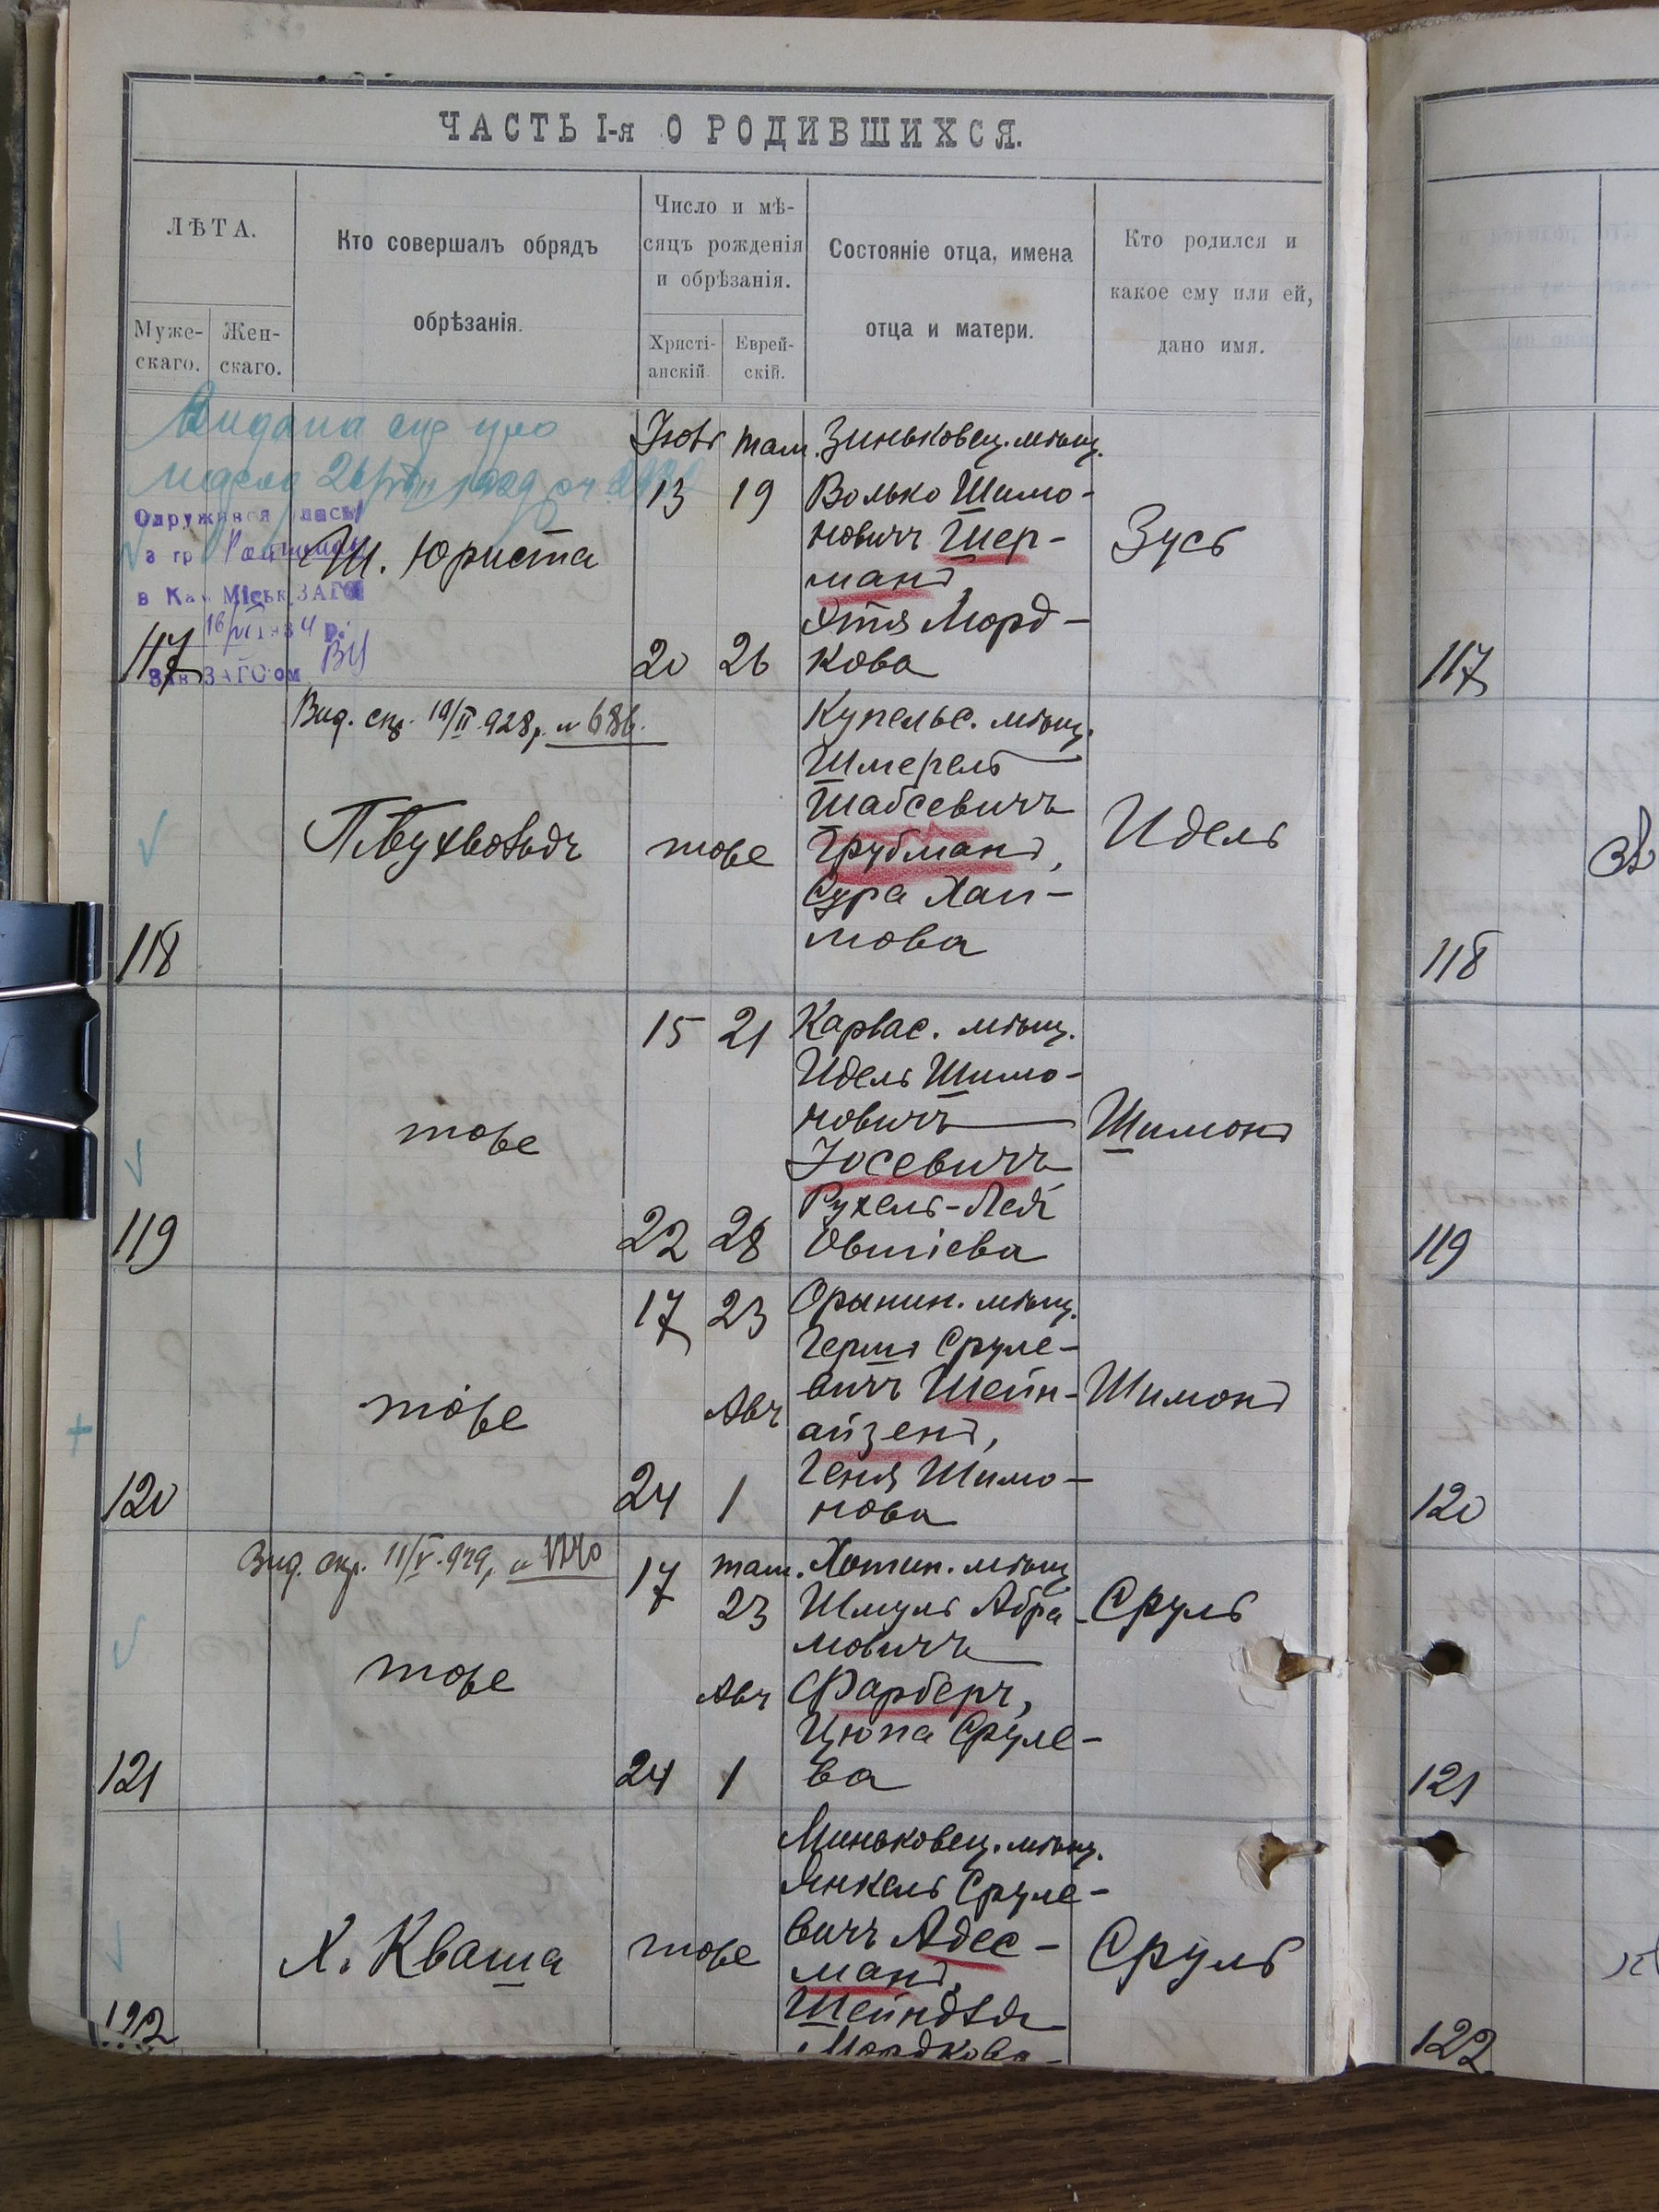 ЧАСТЬ I-я О РОДИВШИХСЯ.
ЛѢТА.
Муже-
скаго.
Жен-
скаго.
Кто совершалъ обрядъ
обрѣзанія.
Число и мѣ-
сяцъ рожденія
и обрѣзанія.
Христі-
анскій.
Еврей-
скій.
Состояніе отца, имена
отца и матери.
Кто родился и
какое ему или ей,
дано имя.
Видана
Одружився
з гр
в Кам Міськ ЗАГС
16/VI 1934 р.
Зав ЗАГСом
117
Ш. Юриста
Іюль Там.
13 19
20 26
Зиньковец. мѣщ.
Волько Шимо-
новичъ Шер-
манъ,
Этя Морд-
кова
Зусь
117
Вид. 19/II 928 р. № 686.
118
П. Бухволъдъ
тоже
Купельс. мѣщ.
Шмерель
Шабсевичъ
Грубманъ,
Сура Хаи-
мова
Идель
118
119
тоже
15 21
22 28
Карвас. мѣщ.
Идель Шимо-
новичъ
Іосевичъ
Рухель-Лея
Овшіева
Шимонъ
119
120
тоже
17 23
Авъ
24 1
Орынин. мѣщ.
Гершъ Сруле-
вичъ Шейн-
айзенъ,
Геня Шимо-
нова
Шимонъ
120
Вид. 11/V.929,
121
тоже
17 там.
23
Авъ
24 1
Хотин. мѣщ
Шмуль Абра-
мовичъ
Фарберъ,
Цюпа Сруле-
ва
Сруль
121
122
Х. Кваша
тоже
Миньковец. мѣщ.
Янкель Сруле-
вичъ Адес-
манъ,
Шейндля
Мордкова
Сруль
122